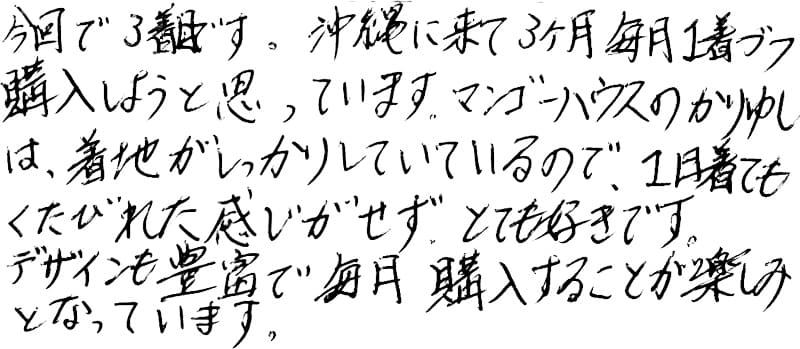 今回で3着目です。沖縄に来て3ヶ月毎月1着づつ
購入しようと思っています。マンゴーハウスのかりゆし
は、着地がしっかりしていているので、1日着ても
くたびれた感じがせず、とても好きです。
デザインも豊富で毎月購入することが楽しみ
となっています。